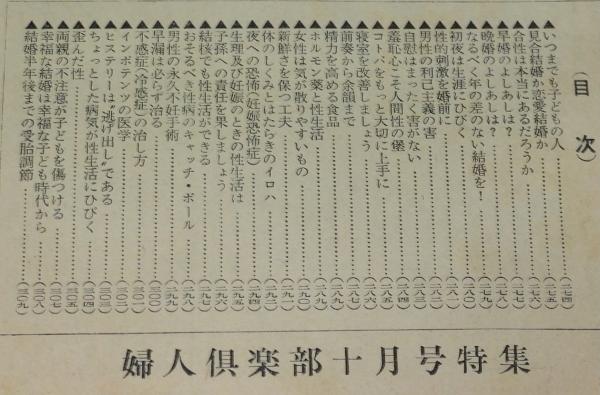 (目 次)
▲いつまでも子どもの人……(二七四)
▲見合結婚か恋愛結婚か……(二七六)
▲合性は本当にあるだろうか……(二七七)
▲早婚のよしあしは?……(二七八)
▲晩婚のよしあしは?……(二七九)
▲なるべく年の差のない結婚を!……(二八〇)
▲初夜は生涯にひびく……(二八一)
▲性的刺激を婚前に……(二八二)
▲男性の利己主義の害……(二八三)
▲自慰はまったく害がない……(二八四)
▲羞恥心こそ人間性の堡……(二八五)
▲コトバをもっと大切に上手に……(二八六)
▲寝室を改善しましょう……(二八七)
▲前奏から余韻まで……(二八八)
▲精力を高める食品……(二八九)
▲ホルモン薬と性生活……(二九〇)
▲女性は気が散りやすいもの……(二九一)
▲新鮮さを保つ工夫……(二九二)
▲体のしくみとはたらきのイロハ……(二九三)
▲夜への恐怖(妊娠恐怖症)……(二九四)
▲生理及び妊娠のときの性生活は……(二九五)
▲子孫への責任を果しましょう……(二九六)
▲結核でも性生活ができる……(二九七)
▲おそるべき性病のキャッチ・ボール……(二九八)
▲男性の永久不妊手術……(二九九)
▲早漏は必らず治る……(三〇〇)
▲不感症(冷感症)の治し方……(三〇一)
▲インポテンツの医学……(三〇二)
▲ヒステリーは"逃げ出し"である……(三〇三)
▲ちょっとした病気が性生活にひびく……(三〇四)
▲歪んだ性……(三〇五)
▲両親の不注意が子どもを傷つける……(三〇七)
▲幸福な結婚は幸福な子ども時代から……(三〇八)
▲結婚半年後までの受胎調節……(三〇九)
婦人倶楽部十月号特集